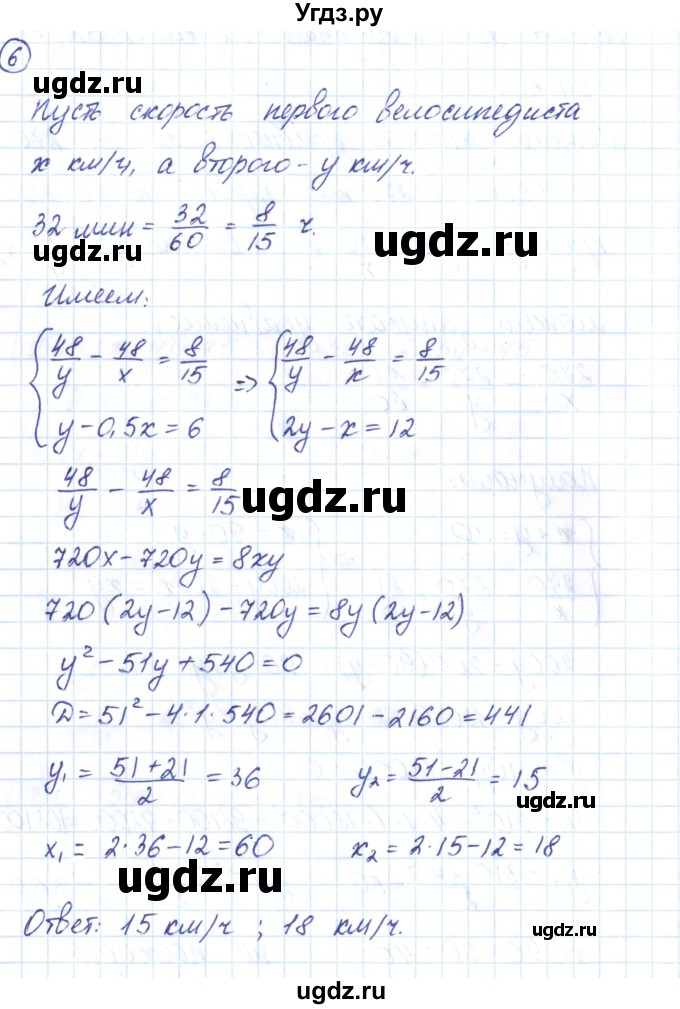 Угдз.ру
6
ugdz.ru
Пусть скорость первого велосипедиста
x км/ч, а второго - y км/ч.
32 мин = 32/60 = 8/15 ч.
ugdz.ru
ugdz.ru
Имеем:
{ 48/y - 48/x = 8/15 => { 48/y - 48/x = 8/15
y - 0,5x = 6 2y - x = 12
48/y - 48/x = 8/15
ugdz.ru
720x - 720y = 8xy
720 (2y - 12) - 720y = 8y (2y - 12)
y² - 51y + 540 = 0
D = 51² - 4·1·540 = 2601 - 2160 = 441
y₁ = (51 + 21)/2 = 36 y₂ = (51 - 21)/2 = 15
ugdz.ru
x₁ = 2·36 - 12 = 60 x₂ = 2·15 - 12 = 18
ugdz.ru
Ответ: 15 км/ч ; 18 км/ч.
ugdz.ru
ugdz.ru